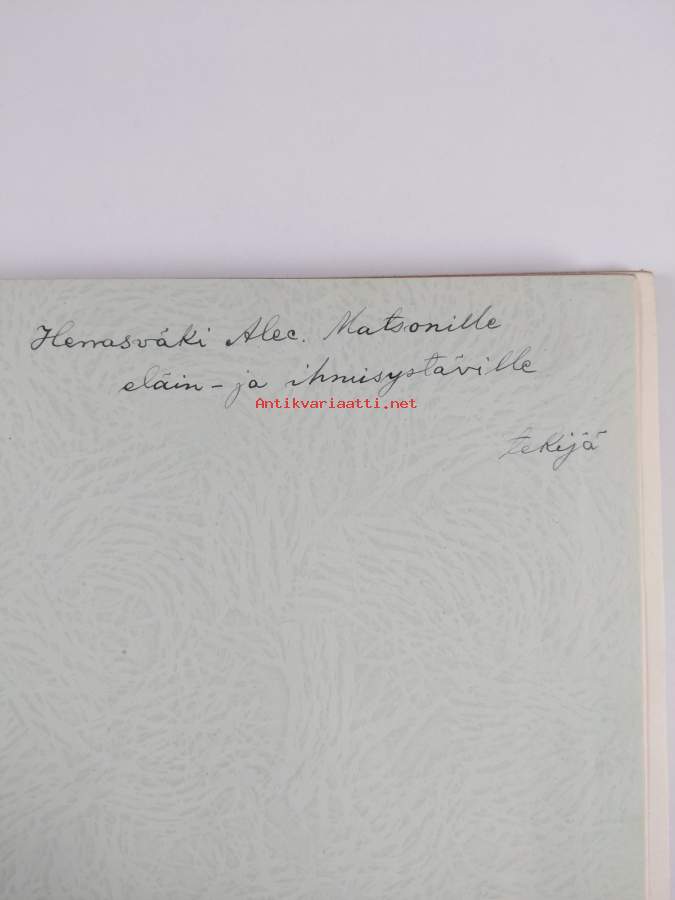 Herrasväki Alec. Matsonille
eläin- ja ihmisystäville
Antikvariaatti.net
tekijä